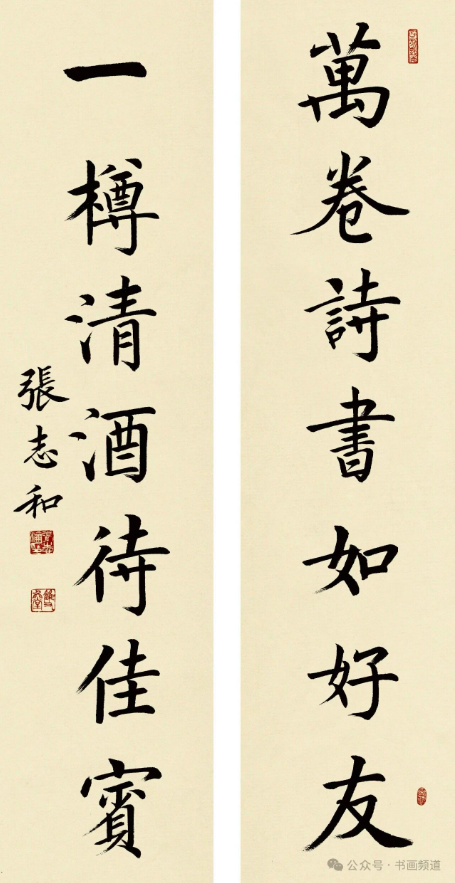 萬卷詩書如好友
一樽清酒待佳賓
張志和
公众号·书画频道